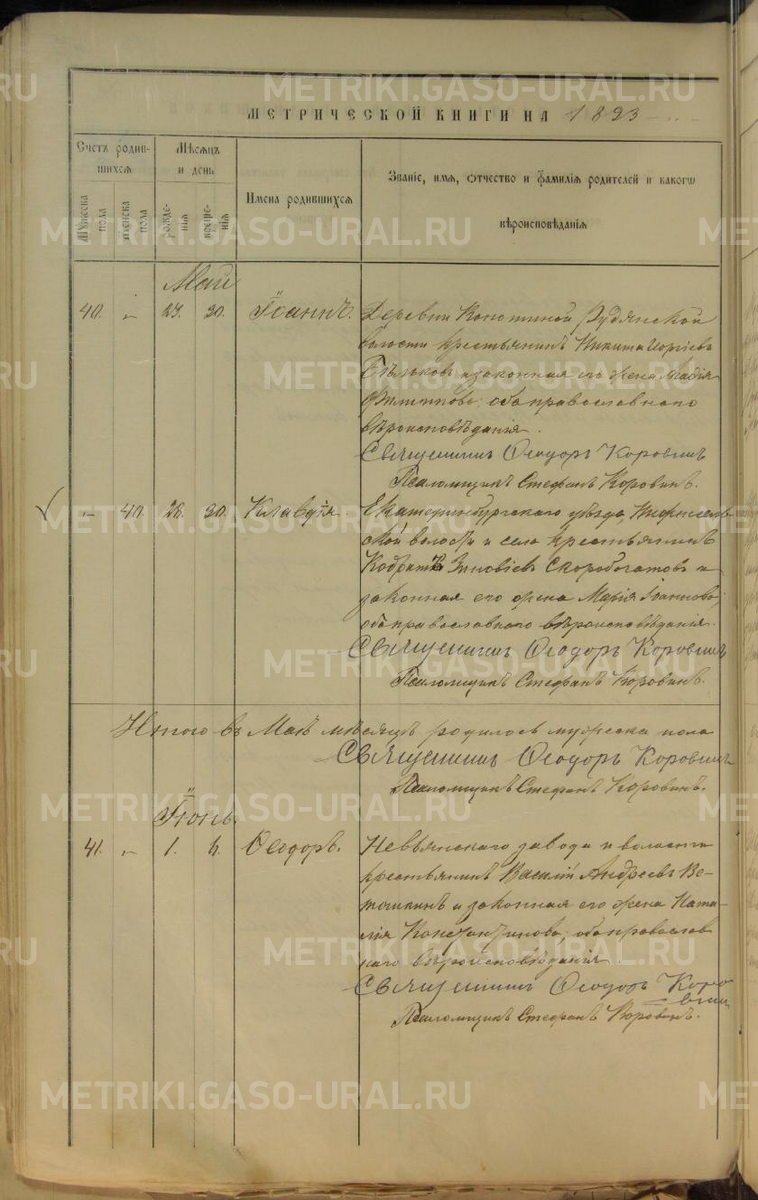 МЕТРИЧЕСКОЙ КНИГИ НА 1893
Счетъ родившихся
Мѣсяцъ и день
Имена родившихся
Званіе, имя, отчество и фамилія родителей и какого вѣроисповѣданія
Мужеска пола
Женска пола
рожденія
крещенія
Май
40. „ 29. 30. Іоаннъ.
Деревни Конотиной Рудянской
волости крестьянинъ Никита Георгіевъ
Бѣльковъ и законная его жена Марія
Филиппова; оба православнаго
вѣроисповѣданія.
Священникъ Ѳеодоръ Коровинъ
Псаломщикъ Стефанъ Коровинъ.
„ 40. 28. 30. Клавдія.
Екатеринбургскаго уѣзда,
ской волости и села крестьянинъ
Кодратъ Зиновіевъ Скоробогатовъ и
законная его жена Марія Іванова;
оба православнаго вѣроисповѣданія.
Священникъ Ѳеодоръ Коровинъ
Псаломщикъ Стефанъ Коровинъ.
Итого въ Маѣ мѣсяцѣ родилось мужеска пола
Священникъ Ѳеодоръ Коровинъ
Псаломщикъ Стефанъ Коровинъ.
Іюнь.
41. „ 1. 6. Ѳеодоръ.
Невьянскаго завода и волости
крестьянинъ Василій Андреевъ Ве-
тошкинъ и законная его жена Ната-
лія Константинова; оба православ
наго вѣроисповѣданія.
Священникъ Ѳеодоръ Коро
винъ
Псаломщикъ Стефанъ Коровинъ.
METRIKI.GASO-URAL.RU